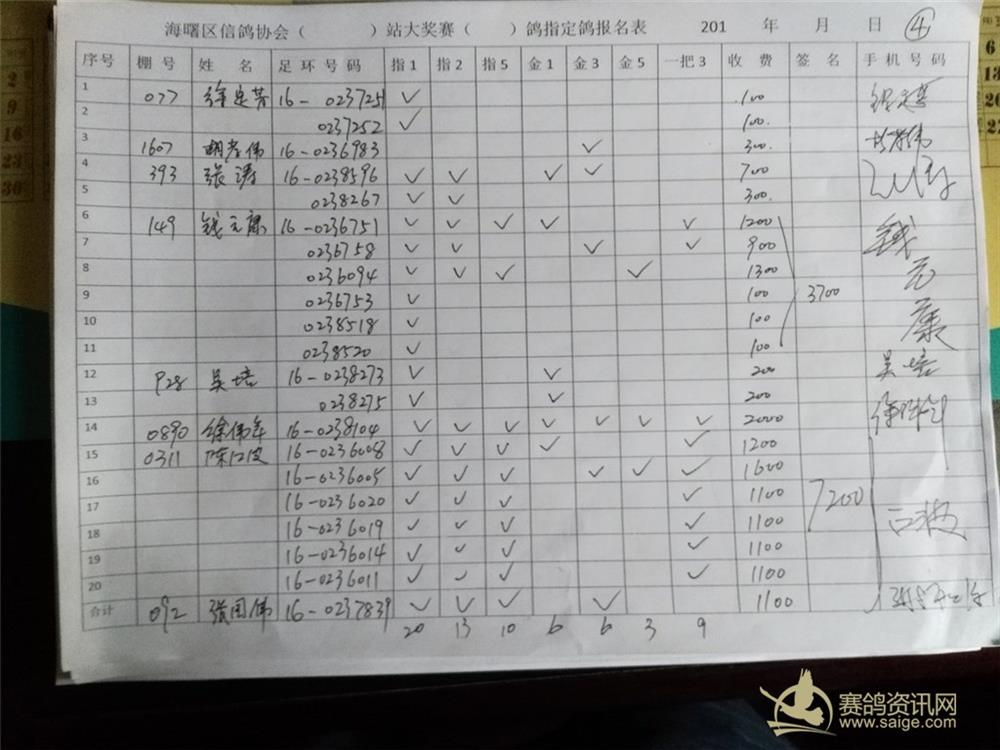 海曙区信鸽协会（ ）站大奖赛（ ）鸽指定鸽报名表 201 年 月 日 ④
序号 棚号 姓 名 足环号码 指1 指2 指5 金1 金3 金5 一把3 收 费 签 名 手机号码
1 077 徐定芳 16-0237251 ✓ 100
2 0237252 ✓ 100
3 1607 胡孝伟 16-0236983 ✓ 300
4 393 张涛 16-0238596 ✓ ✓ ✓ ✓ 700
5 0238267 ✓ ✓ 300
6 149 钱元康 16-0236751 ✓ ✓ ✓ ✓ ✓ 1200 钱
7 0236758 ✓ ✓ ✓ ✓ 900
8 0236094 ✓ ✓ ✓ ✓ 1300 元
9 0236753 ✓ 100 3700
10 0238518 ✓ 100 康
11 0238520 ✓ 100
12 P28 吴培 16-0238273 ✓ ✓ 200 吴培
13 0238275 ✓ ✓ 200
14 0890 徐伟年 16-0238104 ✓ ✓ ✓ ✓ ✓ ✓ ✓ 2000
15 0311 陈江波 16-0236008 ✓ ✓ ✓ ✓ ✓ 1200
16 16-0236005 ✓ ✓ ✓ ✓ ✓ ✓ 1600
17 16-0236020 ✓ ✓ ✓ ✓ 1100 7200
18 16-0236019 ✓ ✓ ✓ ✓ 1100 江波
19 16-0236014 ✓ ✓ ✓ ✓ 1100
20 16-0236011 ✓ ✓ ✓ ✓ 1100
合计 092 张国伟 16-0237839 ✓ ✓ ✓ ✓ 1100
20 13 10 6 6 3 9
赛鸽资讯网
www.saige.com